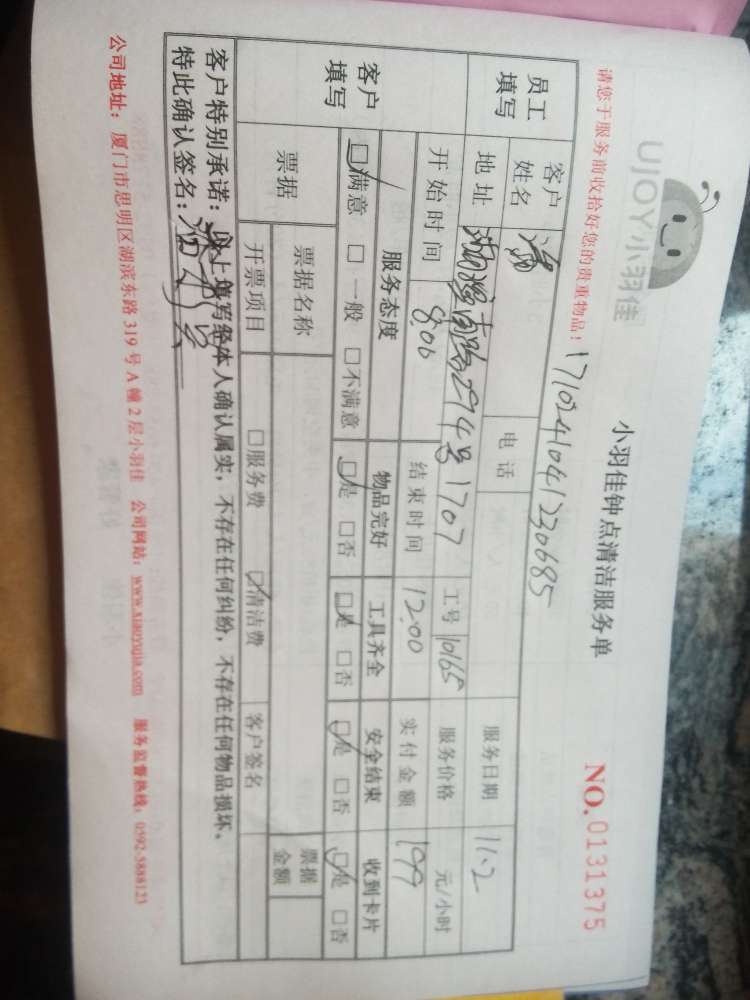 UJOY小羽佳
小羽佳钟点清洁服务单
NO.0131375
请您于服务前收拾好您的贵重物品!
1710241041230685
员工填写 客户姓名 电话 服务日期 11.2
地址 湖滨南路274号1707 工号 10165 服务价格 元/小时
开始时间 8:00 结束时间 12:00 实付金额 199
客户填写 服务态度 物品完好 工具齐全 安全结束 收到卡片
☑满意 □一般 □不满意 ☑是 □否 ☑是 □否 ☑是 □否 ☑是 □否
票据 票据名称 票据金额
开票项目 □服务费 ☑清洁费 客户签名
客户特别承诺:以上填写经本人确认属实,不存在任何纠纷,不存在任何物品损坏。
特此确认签名:
公司地址:厦门市思明区湖滨东路319号A幢2层小羽佳 公司网站:www.xiaoyujia.com 服务监督热线:0592-5888123